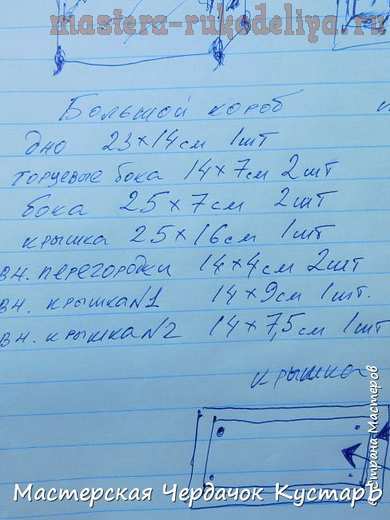 mastera-rukodeliya.ru
Большой короб
дно 23×14см 1шт
торцевые бока 14×7см 2шт
бока 25×7см 2шт
крышка 25×16см 1шт
вн. перегородки 14×4см 2шт
вн. крышка N1 14×9см 1шт.
вн. крышка N2 14×7,5см 1шт
крышка
Страна Мастеров
Мастерская Чердачок Кустарь